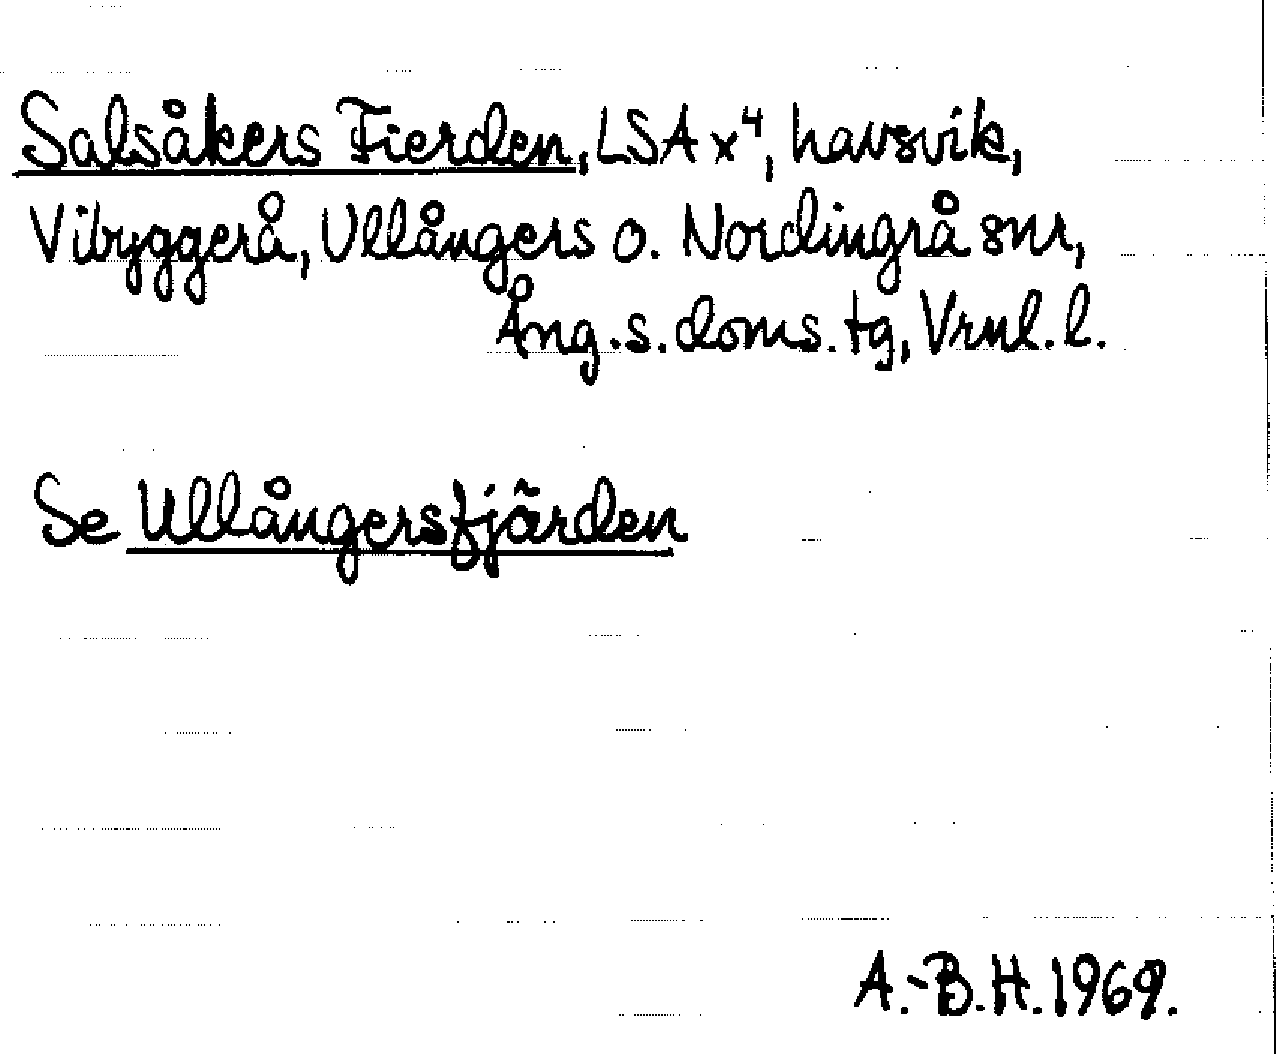 Salsåkers Fierden, LSA x⁴, havsvik,
Vibyggerå, Ullångers o. Nordingrå snr,
Ång. s. doms. tg, Vrnl. l.
Se Ullångersfjärden
A.-B.H. 1969.